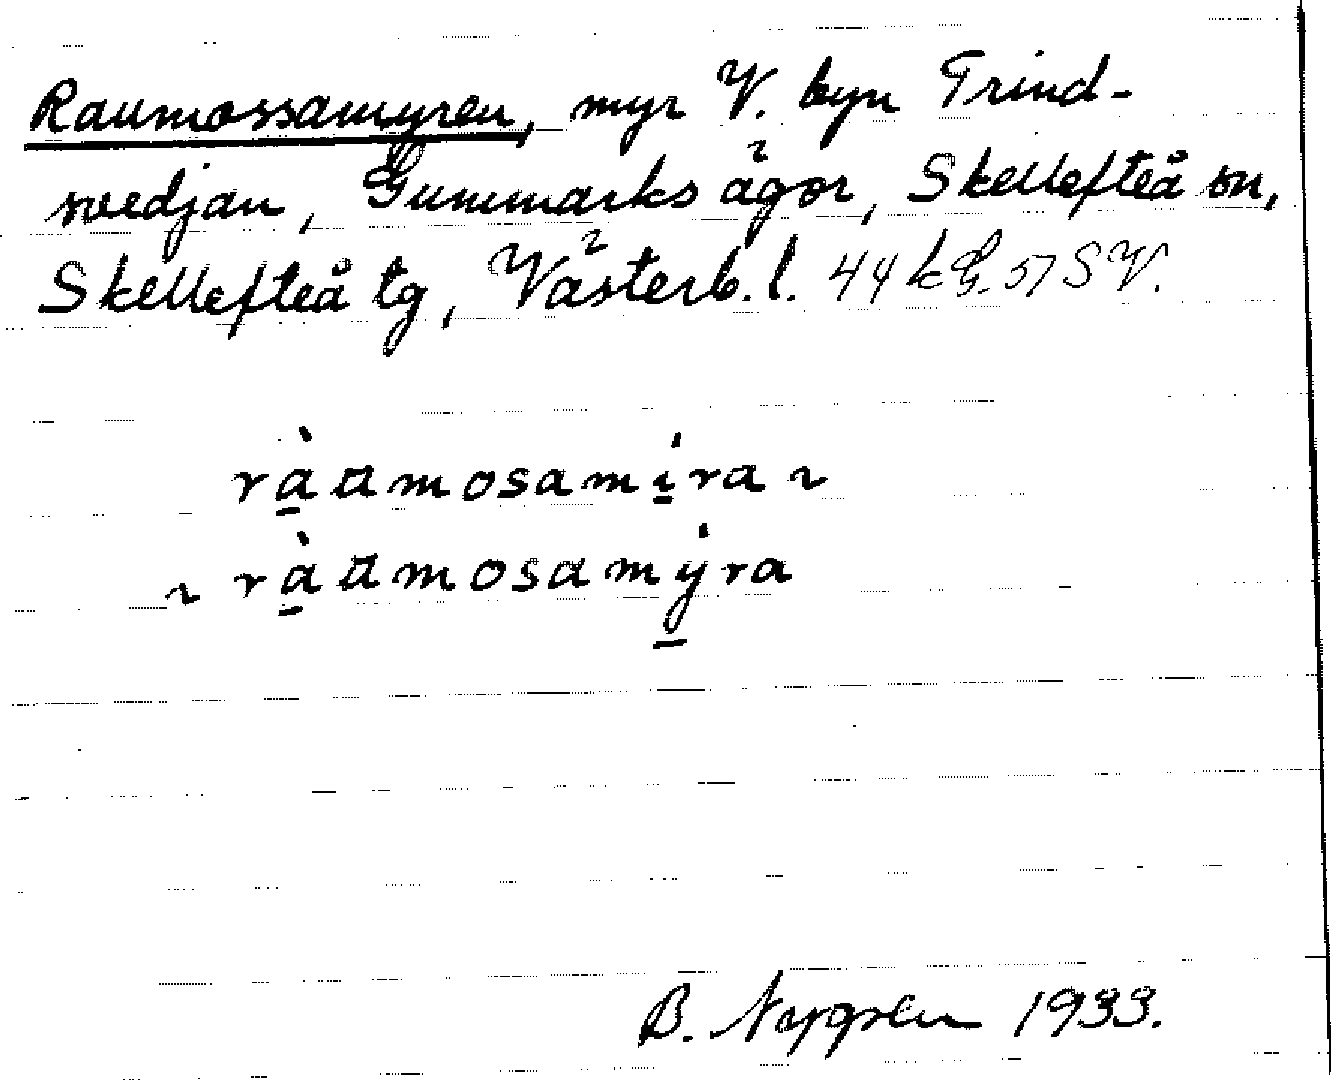 Raumossamyren, myr V. byn Trind-
svedjan, Gummarks ägor, Skellefteå sn,
Skellefteå tg, Västerb. l. 44 k G. 57 S V.
ràamosamíra ~
~ ràamosamýra
B. Nygren 1933.